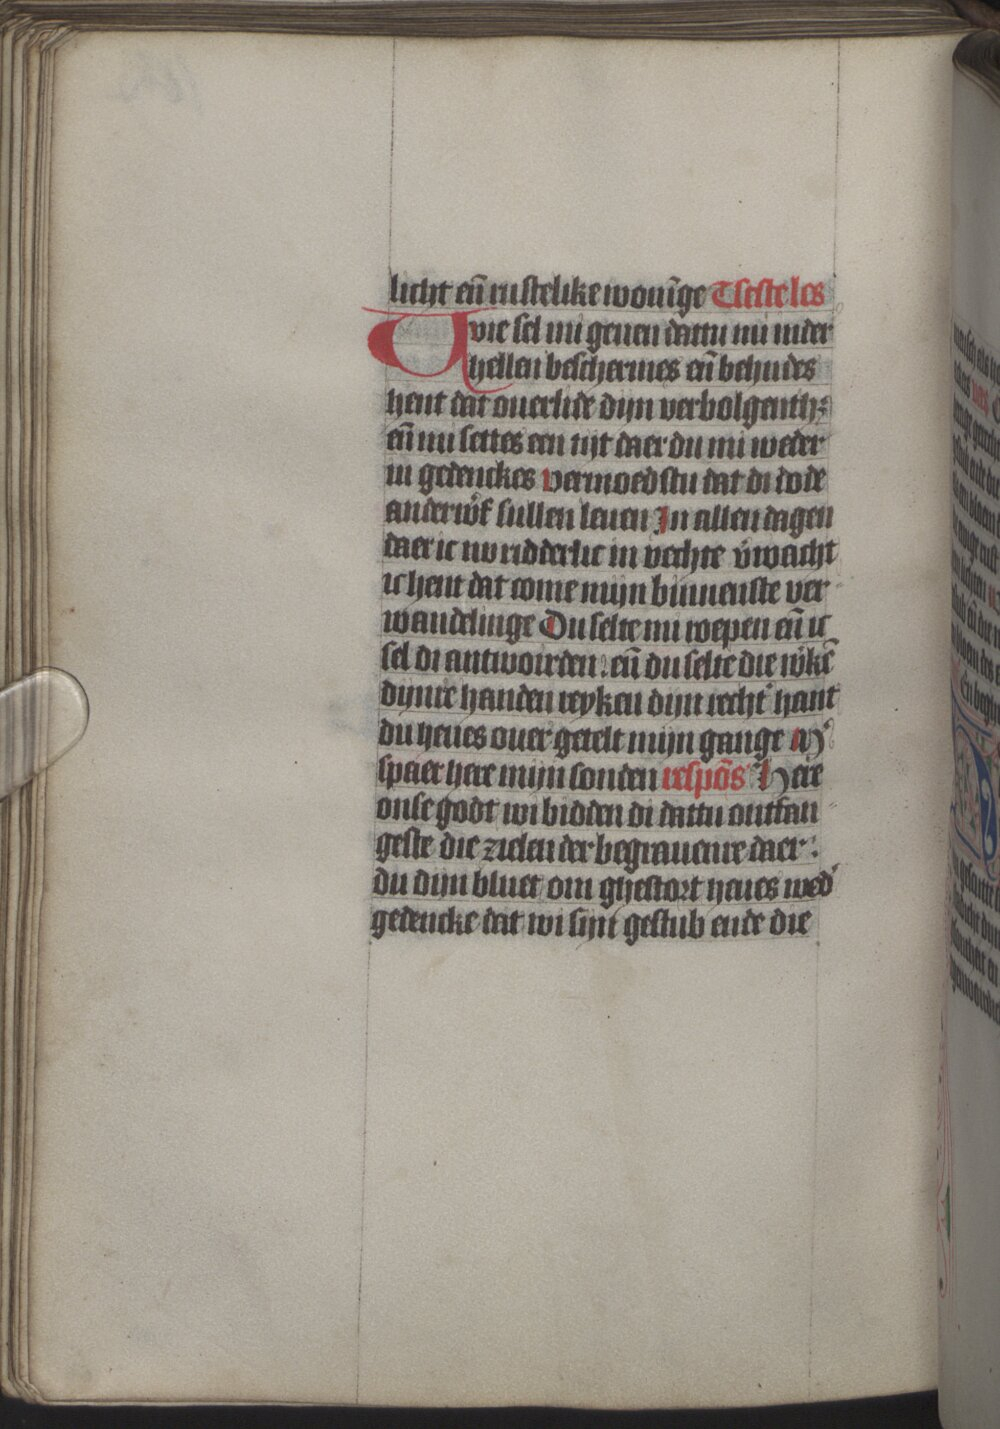 licht en̄ rustelike wouīge Tseste les
Wie sel mi geuen dattu mi inder
hellen beschermes en̄ behudes
hent dat ouerlide dijn verbolgenth
en̄ mi settes een tijt daer du mi weder
in gedenckes vermoedstu dat di dode
anderwͤf sullen leuen In allen dagen
daer ic nv ridderlic in vechte v̄wacht
ic hent dat come mijn binnenste ver
wandelinge Du selte mi roepen en̄ ic
sel di antwoirden: en̄ du selte die wͤkē
dijnre handen reyken dijn rechtͤ hant
du heues ouer getelt mijn gange
spaer here mijn sonden respōs Here
onse godt wi bidden di dattu ontfan
geste die zielen der begrauenre daer:
du dijn bluet om ghestort heues wedͤ
gedencke dat wi sijn gestub ende die